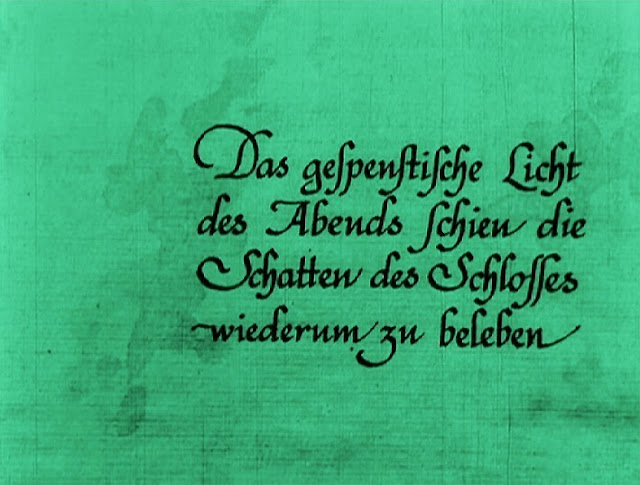 Das geſpenſtiſche Licht
des Abends ſchien die
Schatten des Schloſſes
wiederum zu beleben